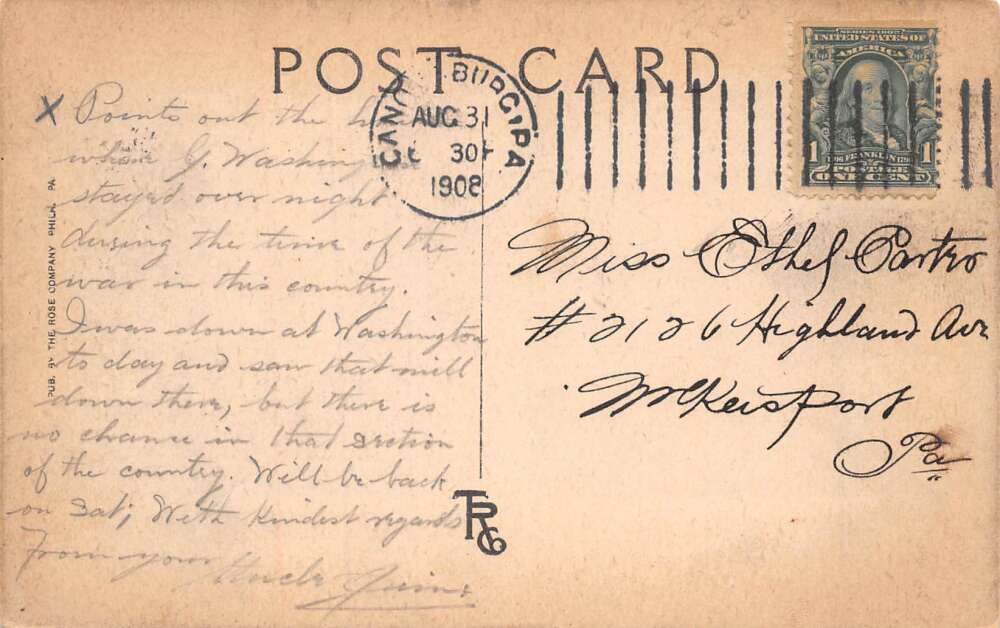 POST CARD
CANO BURG, PA
AUG 31
30
1908
SERIES 1902
UNITED STATES OF
AMERICA
1 1706 FRANKLIN 1790 1
POSTAGE
ONE CENT
X Points out the
where G. Washing
stayed over night
during the time of the
war in this country.
I was down at Washington
to day and saw that mill
down there, but there is
no chance in that section
of the country. Will be back
on Sat; With kindest regards
From your
Uncle Jim
PUB. BY THE ROSE COMPANY PHILA. PA.
TRCo
Miss Ethel Porter
# 2126 Highland Ave
McKeesport
Pa